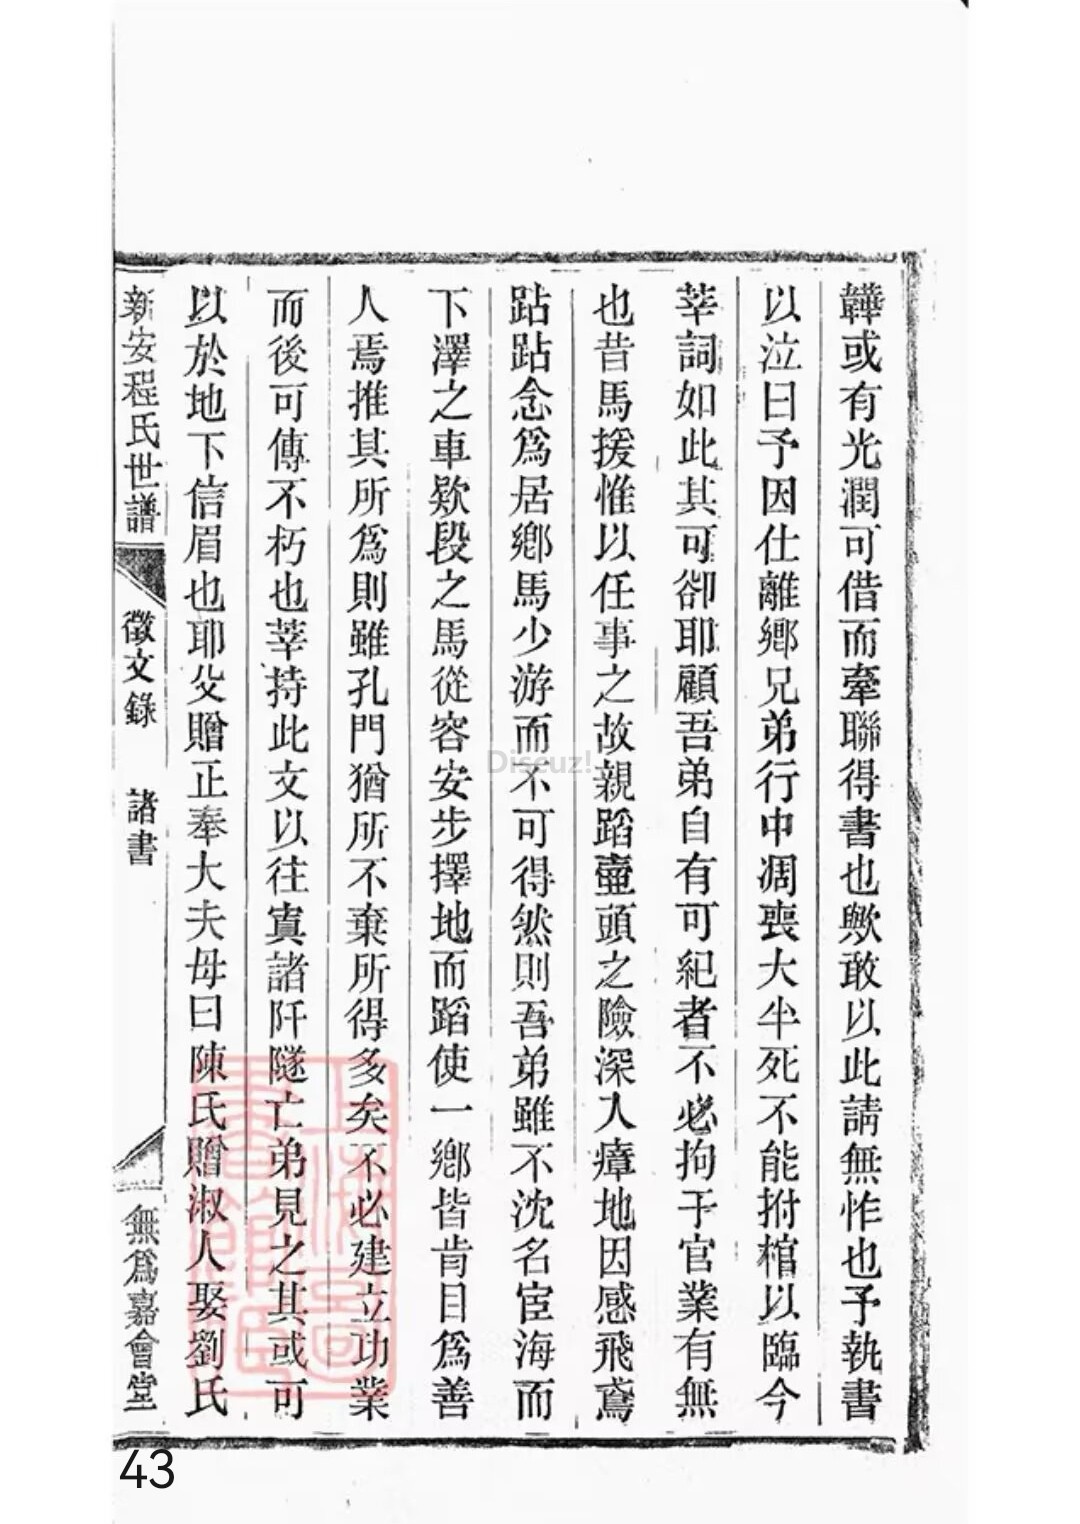 韡或有光潤可借而牽聯得書也歟敢以此請無怍也予執書
以泣曰予因仕離鄉兄弟行中凋喪大半死不能拊棺以臨今
莘詞如此其可卻耶顧吾弟自有可紀者不必拘于官業有無
也昔馬援惟以任事之故親蹈壷頭之險深入瘴地因感飛鳶
跕跕念爲居鄉馬少游而不可得然則吾弟雖不沈名宦海而
下澤之車欵段之馬從容安步擇地而蹈使一鄉皆肯目爲善
人焉推其所爲則雖孔門猶所不棄所得多矣不必建立功業
而後可傳不朽也莘持此文以往寘諸阡隧亡弟見之其或可
以於地下信眉也耶父贈正奉大夫母曰陳氏贈淑人娶劉氏
新安程氏世譜 徵文錄 諸書 無爲嘉會堂
上海圖書館藏
Discuz!
43